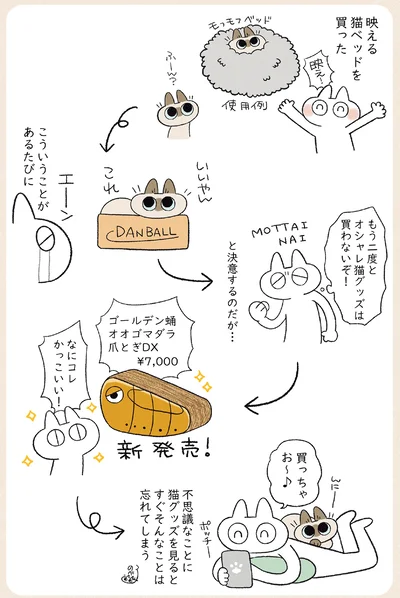 映える
猫ベッドを
買った
モフモフベッド
映え〜
使用例
ふーん?
いいやん
これ
DANBALL
こういうことが
あるたびに
エーン
もう二度と
オシャレ猫グッズは
買わないぞ!
MOTTAI
NAI
と決意するのだが…
ゴールデン蛹
オオゴマダラ
爪とぎDX
¥7,000
新発売!
なにコレ
かっこいい!
買っちゃ
お〜♪
んにー
ポッチー
不思議なことに
猫グッズを見ると
すぐそんなことは
忘れてしまう